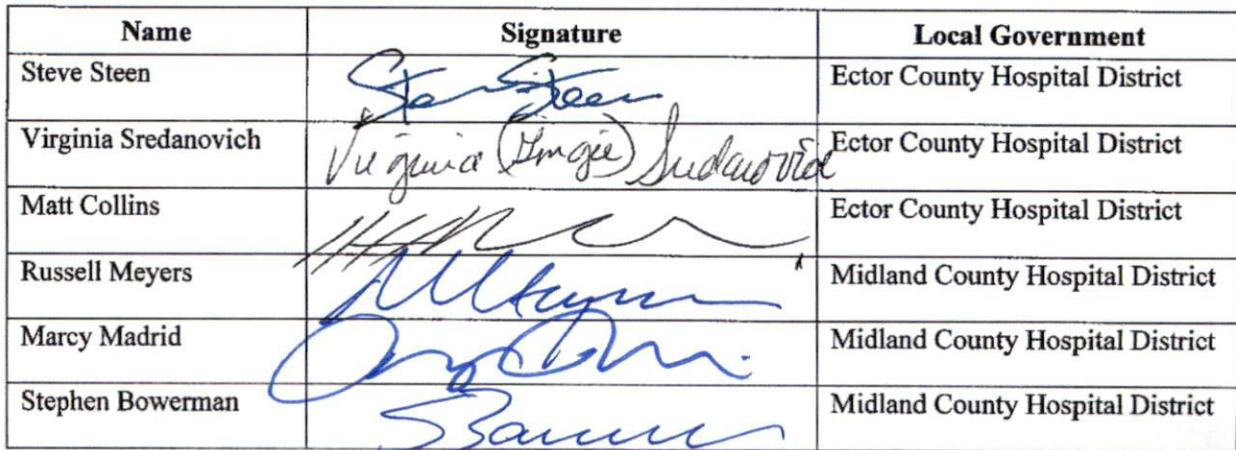 Name Signature Local Government
Steve Steen Steve Steen Ector County Hospital District
Virginia Sredanovich Virginia (Gingie) Sredanovich Ector County Hospital District
Matt Collins Ector County Hospital District
Russell Meyers Midland County Hospital District
Marcy Madrid Midland County Hospital District
Stephen Bowerman Midland County Hospital District